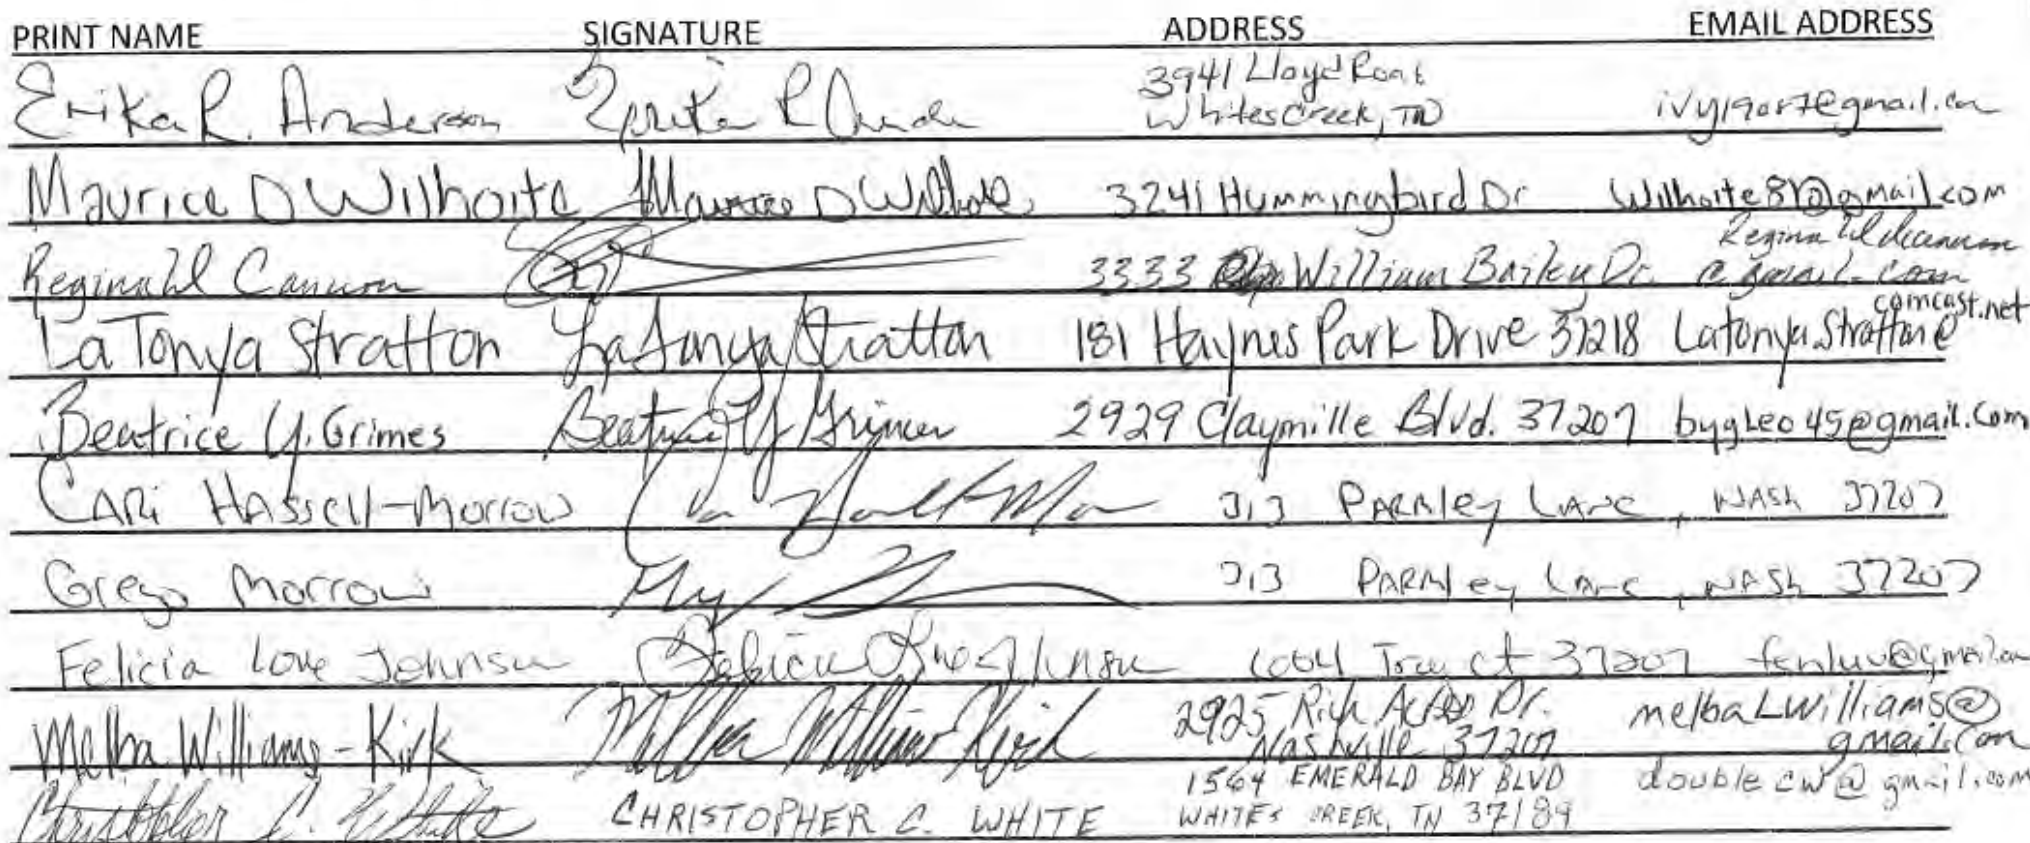 PRINT NAME SIGNATURE ADDRESS EMAIL ADDRESS
Erika R. Anderson Erika R 3941 Lloyd Road
Whites Creek, TN ivy1908@gmail.com
Maurice D Wilhoite Maurice D Wilhoite 3241 Hummingbird Dr Wilhoite81@gmail.com
Reginald Cannon 3333 William Bailey Dr. Reginaldcannon
@gmail.com
LaTonya Stratton LaTonya Stratton 181 Haynes Park Drive 37218 Latonya.Stratton@
comcast.net
Beatrice Y. Grimes Beatrice Y Grimes 2929 Claymille Blvd. 37207 bygleo45@gmail.com
CARi HASSell-Morrow 313 PARMley LANe, NASH 37207
Greg Morrow 313 PARMley LANe, NASH 37207
Felicia Love Johnson Felicia Love Johnson Ct 37207 fenluv@gmail.com
Melba Williams-Kirk Melba Williams Kirk 2925 Rich Acres Dr.
Nashville 37207 melbaLwilliams@
gmail.com
Christopher C. White CHRISTOPHER C. WHITE 1564 EMERALD BAY BLVD
WHITES CREEK, TN 37189 doublecw@gmail.com